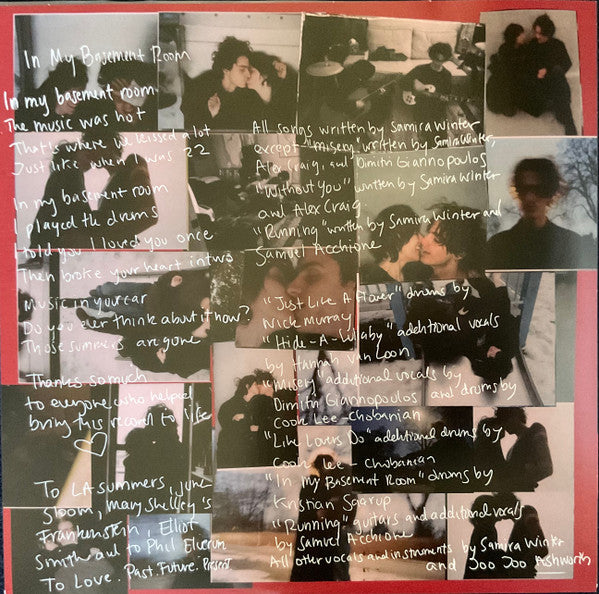 In My Basement Room
In my basement room
The music was hot
That's where we kissed a lot
Just like when I was 22
In my basement room
I played the drums
I told you I loved you once
Then broke your heart in two
Music in your car
Do you ever think about it now?
Those summers are gone
Thanks so much
to everyone who helped
bring this record to life
♡
To LA summers, june
gloom, Mary Shelley's
Frankenstein, Elliot
Smith and to Phil Elverum
To Love. Past. Future. Present
All songs written by Samira Winter
except "misery" written by Samira Winter,
Alex Craig, and Dimitri Giannopoulos
"Without you" written by Samira Winter
and Alex Craig.
"Running" written by Samira Winter and
Samuel Acchione
"Just Like A Flower" drums by
Nick Murray
"Hide-A-Lullaby" additional vocals
by Hannah van Loon
"Misery" additional vocals by
Dimitri Giannopoulos and drums by
Cook Lee-Chobanian
"Like Lovers Do" additional drums by
Cook Lee-Chobanian
"In My Basement Room" drums by
Kristian Sgarup
"Running" guitars and additional vocals
by Samuel Acchione
All other vocals and instruments by Samira Winter
and Joo Joo Ashworth